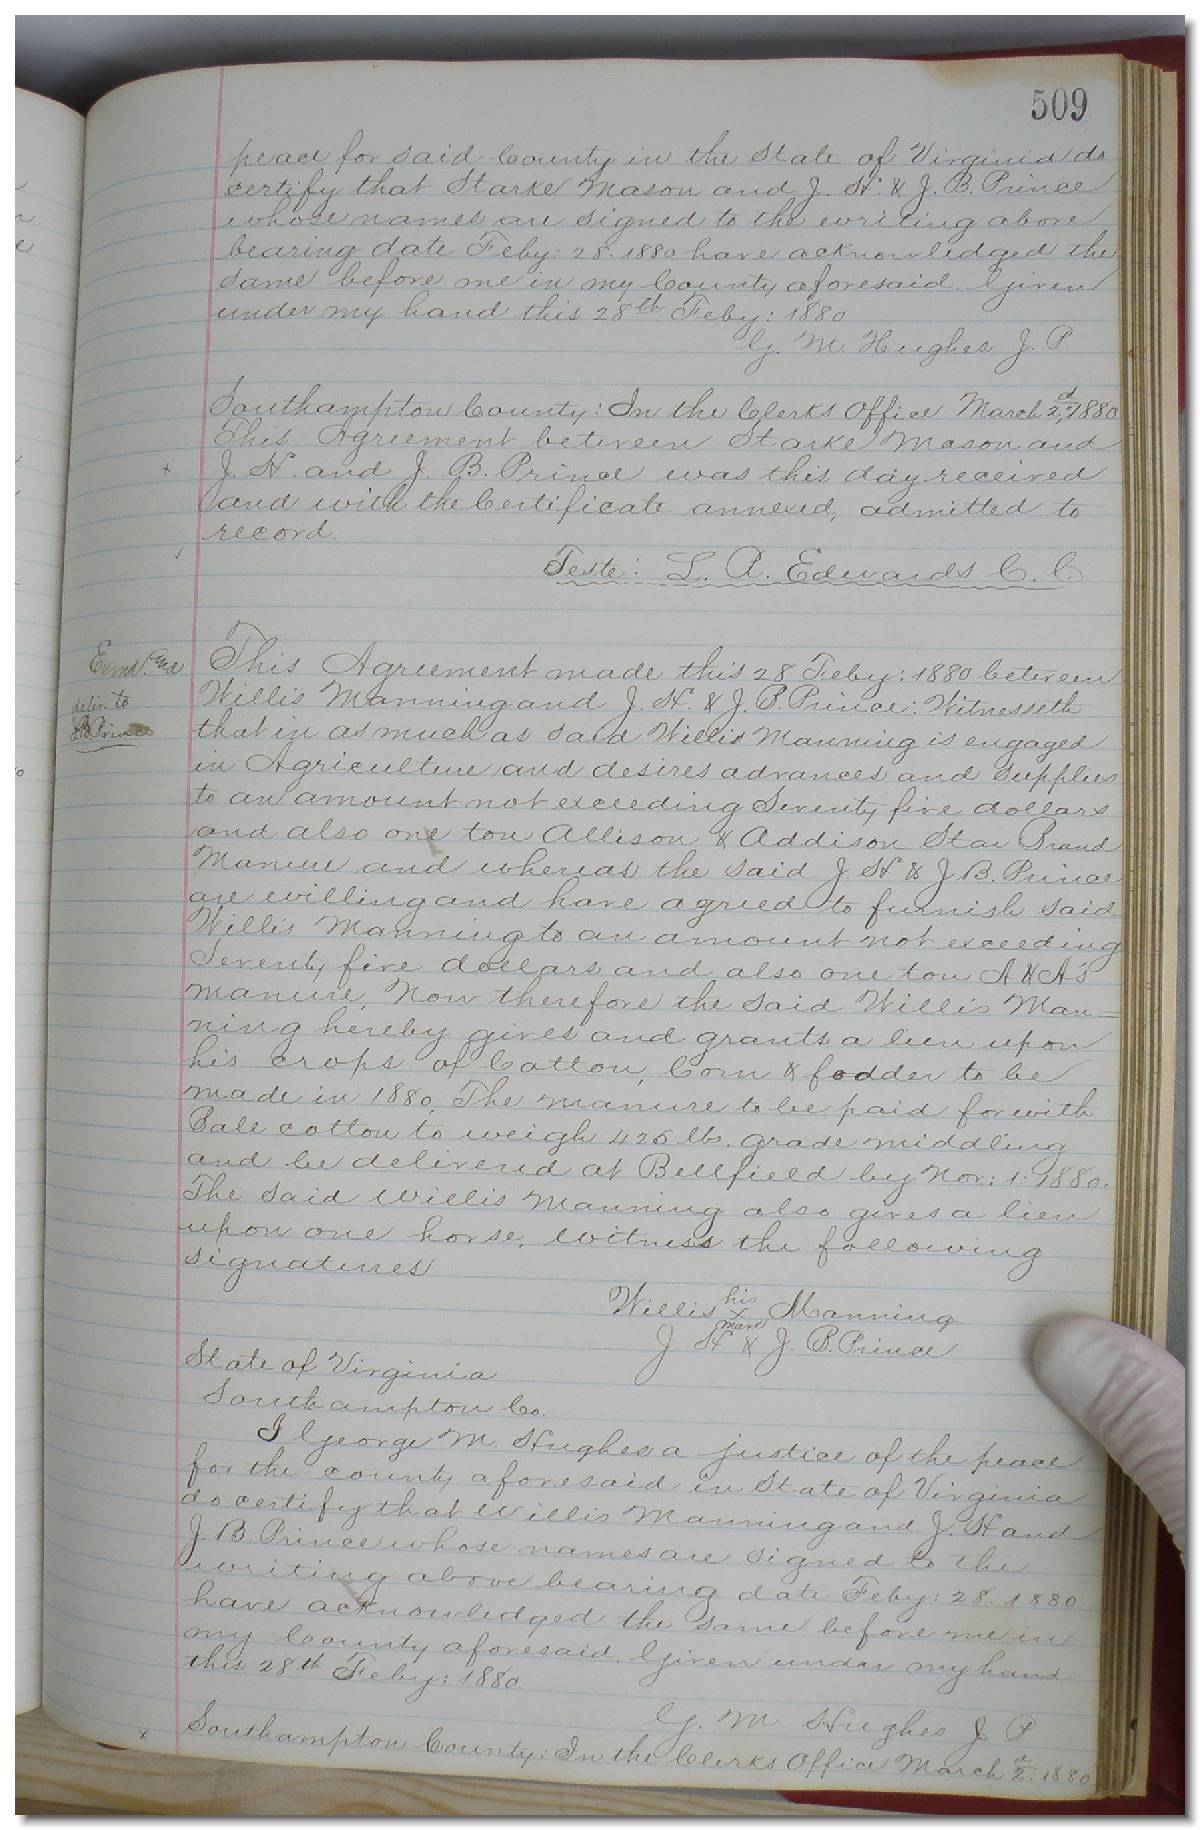 509
peace for said County in the State of Virginia do
certify that Starke Mason and J. H. & J. B. Prince
whose names are signed to the writing above
bearing date Feby: 28. 1880 have acknowledged the
same before me in my County aforesaid. Given
under my hand this 28th Feby: 1880
G. M. Hughes J. P.
Southampton County: In the Clerks Office March 2d, 1880
This Agreement between Starke Mason and
J. H. and J. B. Prince was this day received
and with the Certificate annexed, admitted to
record.
Teste: L. R. Edwards C. C.
Exmd. and
deliv. to
J B Prince
This Agreement made this 28 Feby: 1880 between
Willis Manning and J. H. & J. B. Prince: Witnesseth
that in as much as said Willis Manning is engaged
in Agriculture and desires advances and supplies
to an amount not exceeding Seventy five dollars
and also one ton Allison & Addison Star Brand
Manure and whereas the said J. H & J B. Prince
are willing and have agreed to furnish said
Willis Manning to an amount not exceeding
Seventy five dollars and also one ton A & A's
manure, Now therefore the said Willis Man=
ning hereby gives and grants a lien upon
his crops of Cotton, Corn & fodder to be
made in 1880. The manure to be paid for with
Bale cotton to weigh 425 lbs. grade middling
and be delivered at Bellfield by Nov: 1: 1880.
The said Willis Manning also gives a lien
upon one horse. Witness the following
signatures
Willis his x mark Manning
J. H & J. B. Prince
State of Virginia
Southampton Co.
I George M. Hughes a justice of the peace
for the county aforesaid in State of Virginia
do certify that Willis Manning and J. H and
J. B Prince whose names are signed to the
writing above bearing date Feby: 28. 1880
have acknowledged the same before me in
my County aforesaid. Given under my hand
this 28th Feby: 1880.
G. M. Hughes J P
Southampton County: In the Clerks Office March 2d. 1880